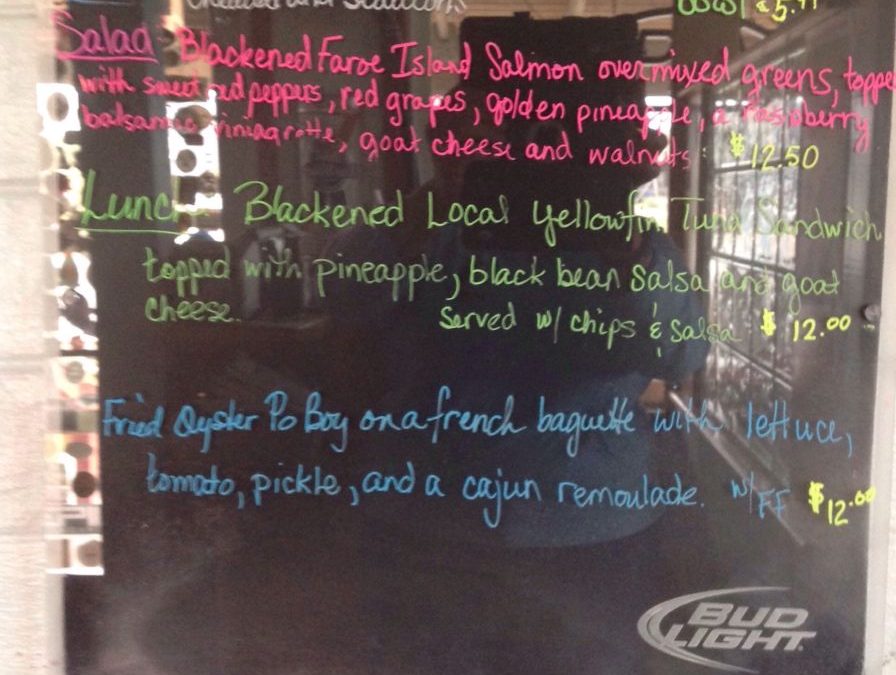 Cheddar and Scallions
$5.99
Salad Blackened Faroe Island Salmon over mixed greens, topped
with sweet red peppers, red grapes, golden pineapple, a raspberry
balsamic viniagrette, goat cheese and walnuts. $12.50
Lunch Blackened Local Yellowfin Tuna Sandwich
topped with pineapple, black bean salsa and goat
cheese. Served w/ chips & salsa $12.00
Fried Oyster Po Boy on a french baguette with lettuce,
tomato, pickle, and a cajun remoulade. w/ FF $12.00
BUD
LIGHT